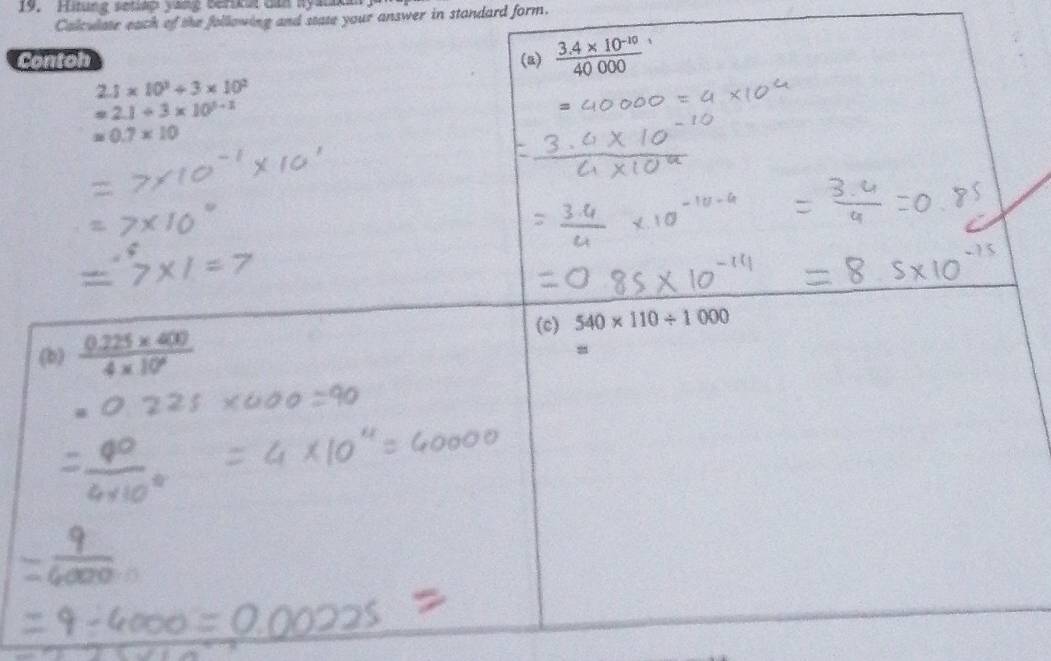 19. Hitung setiap yang berikut dan nyatakan
Calculate each of the following and state your answer in standard form.
Contoh
2.1 × 10³ ÷ 3 × 10²
= 2.1 ÷ 3 × 10³⁻²
= 0.7 × 10
= 7×10⁻¹ × 10¹
= 7×10⁰
= 7×1 = 7
(a) 3.4 × 10⁻¹⁰ / 40 000
= 40000 = 4 ×10⁴
= 3.4 × 10⁻¹⁰ / 4 ×10⁴
= 3.4 / 4 × 10⁻¹⁰⁻⁴ = 3.4 / 4 = 0.85
= 0.85 × 10⁻¹⁴ = 8.5×10⁻¹⁵
(b) 0.225 × 400 / 4 × 10⁴
= 0.225 ×400 = 90
= 90 / 4×10⁴ = 4 ×10⁴ = 40000
= 9 / 4000
= 9 - 4000 = 0.00225 =
(c) 540 × 110 ÷ 1 000
=